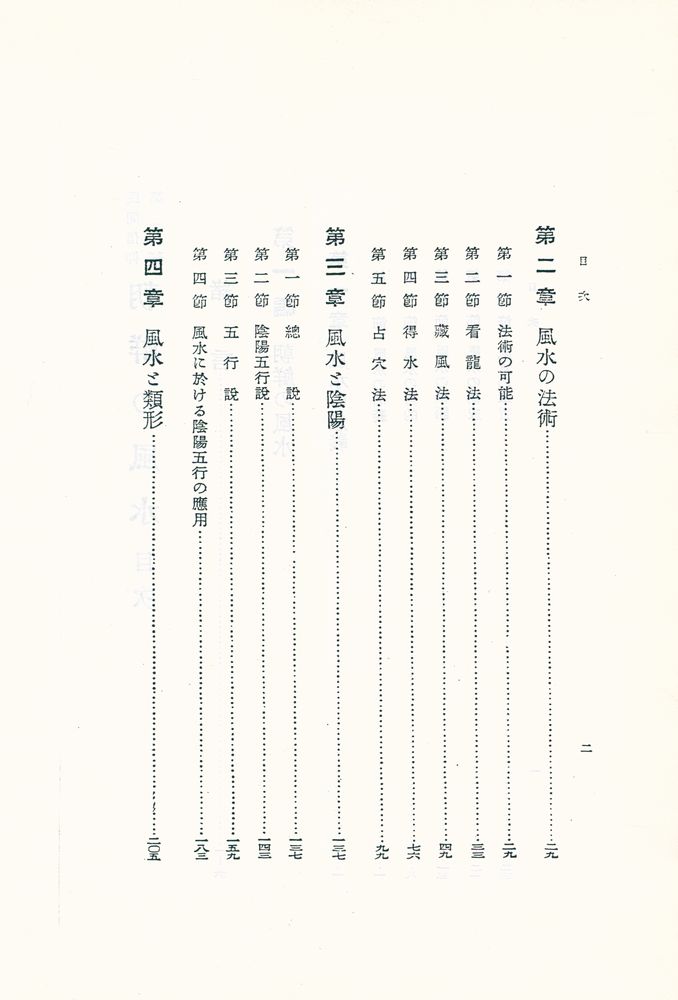 目次
二
第二章 風水の法術……二九
第一節 法術の可能……二九
第二節 看龍法……三三
第三節 藏風法……四九
第四節 得水法……七六
第五節 占穴法……九九
第三章 風水と陰陽……一三七
第一節 總說……一三七
第二節 陰陽五行說……一四三
第三節 五行說……一五九
第四節 風水に於ける陰陽五行の應用……一八三
第四章 風水と類形……二〇五